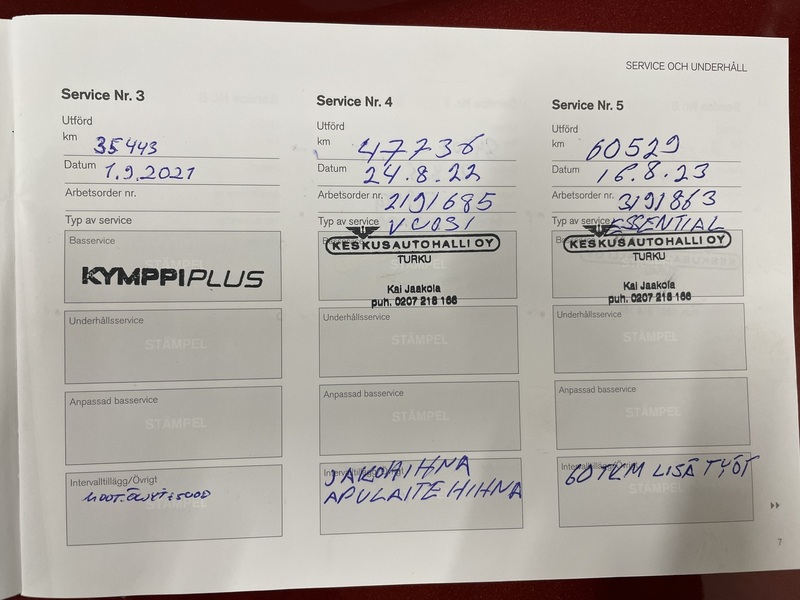 SERVICE OCH UNDERHÅLL
Service Nr. 3
Utförd
km 35443
Datum 1.9.2021
Arbetsorder nr.
Typ av service
Basservice
KYMPPIPLUS
Underhållsservice
STÄMPEL
Anpassad basservice
STÄMPEL
Intervalltillägg/Övrigt
STÄMPEL
Service Nr. 4
Utförd
km 47736
Datum 24.8.22
Arbetsorder nr. 2191685
Typ av service VC031
KESKUSAUTOHALLI OY
TURKU
Kai Jaakola
puh. 0207 218 166
Underhållsservice
STÄMPEL
Anpassad basservice
STÄMPEL
Intervalltillägg/Övrigt
JAKOHIHNA
APULAITEHIHNA
Service Nr. 5
Utförd
km 60529
Datum 16.8.23
Arbetsorder nr. 3191863
Typ av service ESSENTIAL
KESKUSAUTOHALLI OY
TURKU
Kai Jaakola
puh. 0207 218 166
Underhållsservice
STÄMPEL
Anpassad basservice
STÄMPEL
Intervalltillägg/Övrigt
60 TKM LISÄ TYÖT
STÄMPEL
7